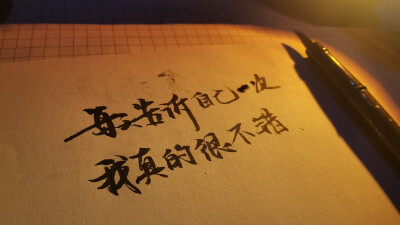 每天告诉自己一次
我真的很不错